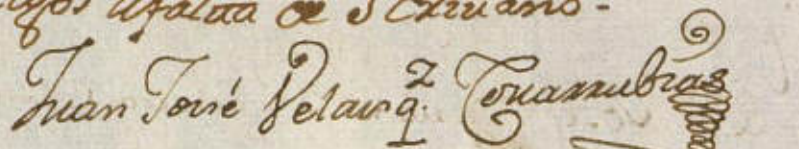 afalta de Scrivano -
Juan José Velasq.z Covarrubias